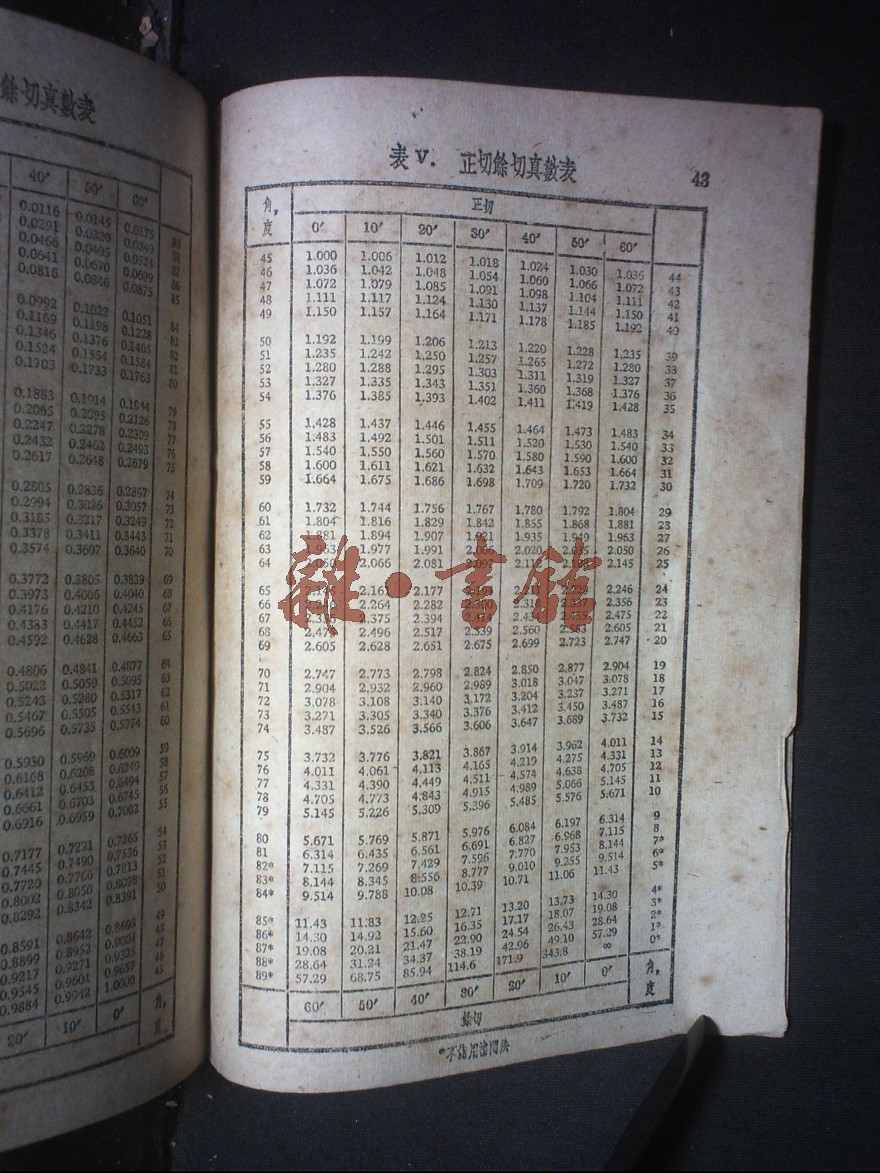 餘切真數表
40′ 50′ 60′
0.0116 0.0145 0.0175 89
0.0291 0.0320 0.0349 88
0.0466 0.0495 0.0524 87
0.0641 0.0670 0.0699 86
0.0816 0.0846 0.0875 85
0.0992 0.1022 0.1051 84
0.1169 0.1198 0.1228 83
0.1346 0.1376 0.1405 82
0.1524 0.1554 0.1584 81
0.1703 0.1733 0.1763 80
0.1883 0.1914 0.1944 79
0.2065 0.2095 0.2126 78
0.2247 0.2278 0.2309 77
0.2432 0.2462 0.2493 76
0.2617 0.2648 0.2679 75
0.2805 0.2836 0.2867 74
0.2994 0.3026 0.3057 73
0.3185 0.3217 0.3249 72
0.3378 0.3411 0.3443 71
0.3574 0.3607 0.3640 70
0.3772 0.3805 0.3839 69
0.3973 0.4006 0.4040 68
0.4176 0.4210 0.4245 67
0.4383 0.4417 0.4452 66
0.4592 0.4628 0.4663 65
0.4806 0.4841 0.4877 64
0.5022 0.5059 0.5095 63
0.5243 0.5280 0.5317 62
0.5467 0.5505 0.5543 61
0.5696 0.5735 0.5774 60
0.5930 0.5969 0.6009 59
0.6168 0.6208 0.6249 58
0.6412 0.6453 0.6494 57
0.6661 0.6703 0.6745 56
0.6916 0.6959 0.7002 55
0.7177 0.7221 0.7265 54
0.7445 0.7490 0.7536 53
0.7720 0.7766 0.7813 52
0.8002 0.8050 0.8098 51
0.8292 0.8342 0.8391 50
0.8591 0.8642 0.8693 49
0.8899 0.8953 0.9004 48
0.9217 0.9271 0.9325 47
0.9545 0.9601 0.9657 46
0.9884 0.9942 1.0000 45
20′ 10′ 0′ 角,度
表 V. 正切餘切真數表 43
角,度 正切
0′ 10′ 20′ 30′ 40′ 50′ 60′
45 1.000 1.006 1.012 1.018 1.024 1.030 1.036 44
46 1.036 1.042 1.048 1.054 1.060 1.066 1.072 43
47 1.072 1.079 1.085 1.091 1.098 1.104 1.111 42
48 1.111 1.117 1.124 1.130 1.137 1.144 1.150 41
49 1.150 1.157 1.164 1.171 1.178 1.185 1.192 40
50 1.192 1.199 1.206 1.213 1.220 1.228 1.235 39
51 1.235 1.242 1.250 1.257 1.265 1.272 1.280 38
52 1.280 1.288 1.295 1.303 1.311 1.319 1.327 37
53 1.327 1.335 1.343 1.351 1.360 1.368 1.376 36
54 1.376 1.385 1.393 1.402 1.411 1.419 1.428 35
55 1.428 1.437 1.446 1.455 1.464 1.473 1.483 34
56 1.483 1.492 1.501 1.511 1.520 1.530 1.540 33
57 1.540 1.550 1.560 1.570 1.580 1.590 1.600 32
58 1.600 1.611 1.621 1.632 1.643 1.653 1.664 31
59 1.664 1.675 1.686 1.698 1.709 1.720 1.732 30
60 1.732 1.744 1.756 1.767 1.780 1.792 1.804 29
61 1.804 1.816 1.829 1.842 1.855 1.868 1.881 28
62 1.881 1.894 1.907 1.921 1.935 1.949 1.963 27
63 1.963 1.977 1.991 2.006 2.020 2.035 2.050 26
64 2.050 2.066 2.081 2.097 2.112 2.128 2.145 25
65 2.161 2.177 2.246 24
66 2.264 2.282 2.300 2.356 23
67 2.375 2.394 2.414 2.475 22
68 2.475 2.496 2.517 2.539 2.560 2.583 2.605 21
69 2.605 2.628 2.651 2.675 2.699 2.723 2.747 20
70 2.747 2.773 2.798 2.824 2.850 2.877 2.904 19
71 2.904 2.932 2.960 2.989 3.018 3.047 3.078 18
72 3.078 3.108 3.140 3.172 3.204 3.237 3.271 17
73 3.271 3.305 3.340 3.376 3.412 3.450 3.487 16
74 3.487 3.526 3.566 3.606 3.647 3.689 3.732 15
75 3.732 3.776 3.821 3.867 3.914 3.962 4.011 14
76 4.011 4.061 4.113 4.165 4.219 4.275 4.331 13
77 4.331 4.390 4.449 4.511 4.574 4.638 4.705 12
78 4.705 4.773 4.843 4.915 4.989 5.066 5.145 11
79 5.145 5.226 5.309 5.396 5.485 5.576 5.671 10
80 5.671 5.769 5.871 5.976 6.084 6.197 6.314 9
81 6.314 6.435 6.561 6.691 6.827 6.968 7.115 8
82* 7.115 7.269 7.429 7.596 7.770 7.953 8.144 7*
83* 8.144 8.345 8.556 8.777 9.010 9.255 9.514 6*
84* 9.514 9.788 10.08 10.39 10.71 11.06 11.43 5*
85* 11.43 11.83 12.25 12.71 13.20 13.73 14.30 4*
86* 14.30 14.92 15.60 16.35 17.17 18.07 19.08 3*
87* 19.08 20.21 21.47 22.90 24.54 26.43 28.64 2*
88* 28.64 31.24 34.37 38.19 42.96 49.10 57.29 1*
89* 57.29 68.75 85.94 114.6 171.9 343.8 ∞ 0*
60′ 50′ 40′ 30′ 20′ 10′ 0′ 角,度
餘切
雜·書館